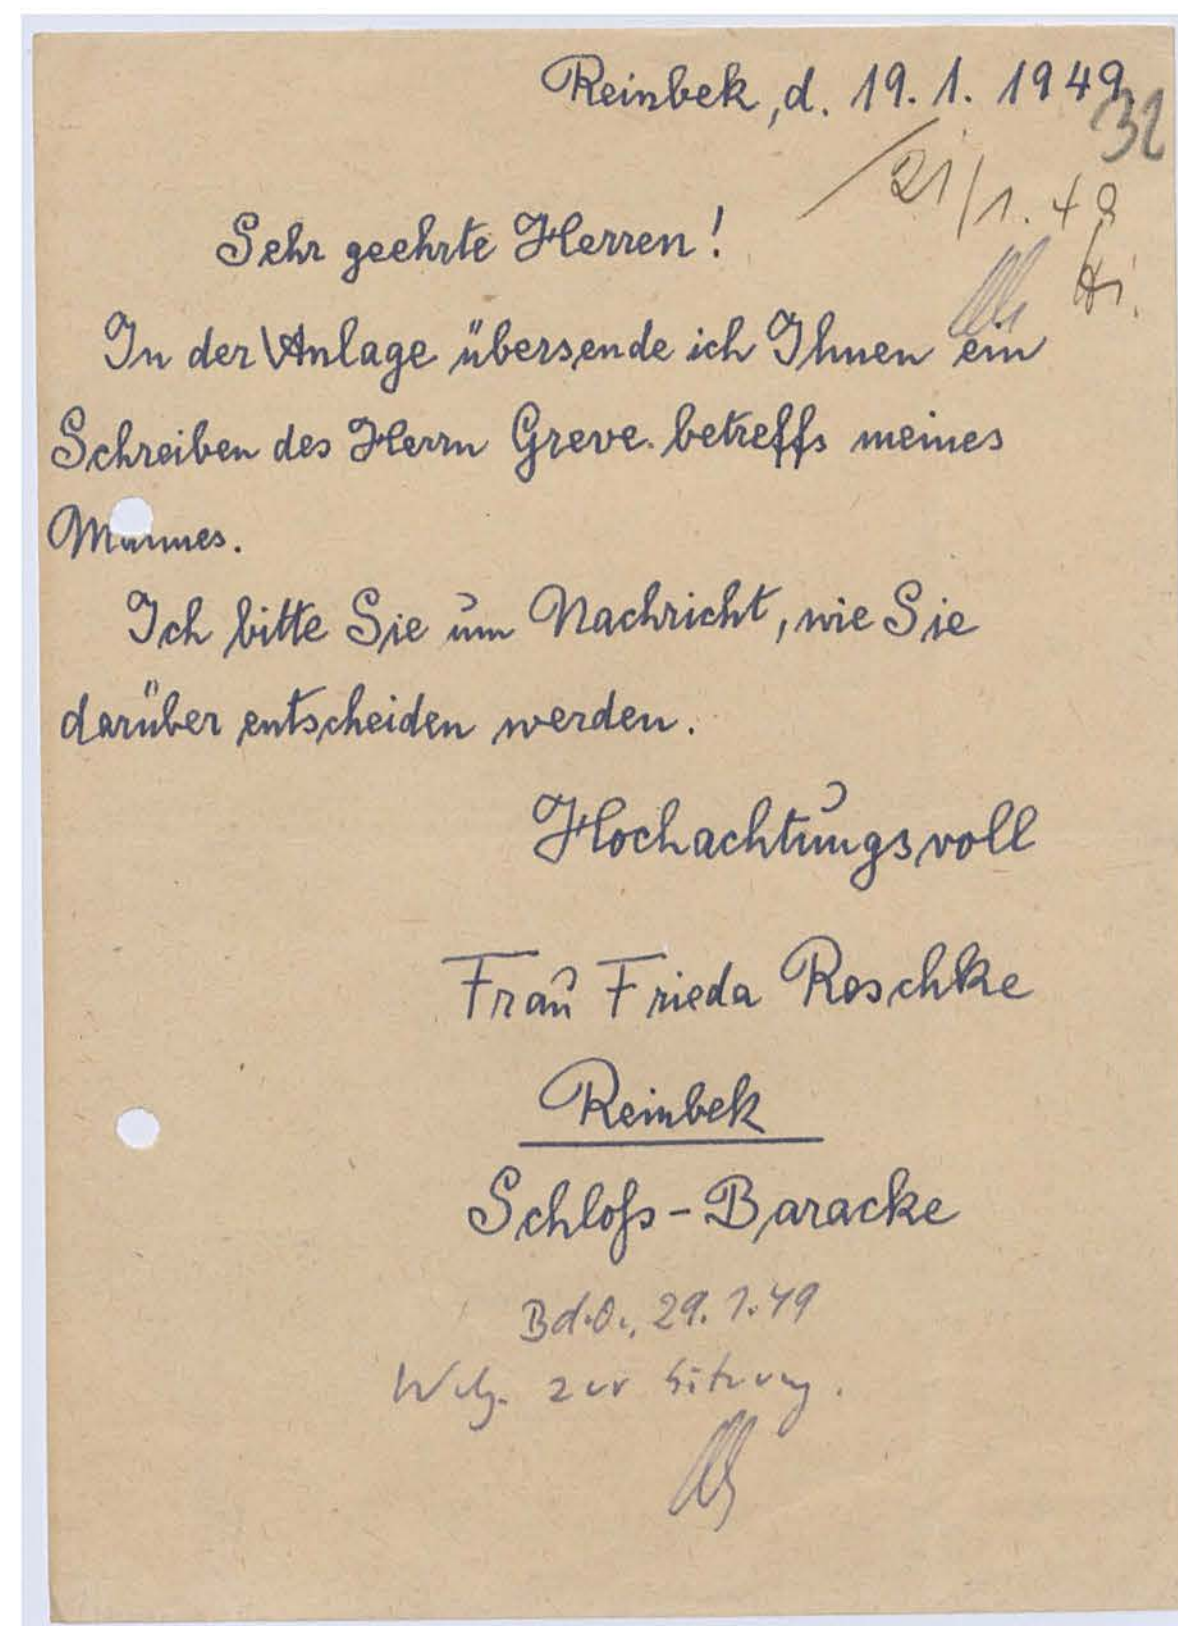 Reinbek, d. 19. 1. 1949
32
21/1. 49
Sehr geehrte Herren!
In der Anlage übersende ich Ihnen ein
Schreiben des Herrn Greve betreffs meines
Mannes.
Ich bitte Sie um Nachricht, wie Sie
darüber entscheiden werden.
Hochachtungsvoll
Frau Frieda Roschke
Reinbek
Schloß-Baracke
Bd.O., 29.1.49
zur Sitzung.